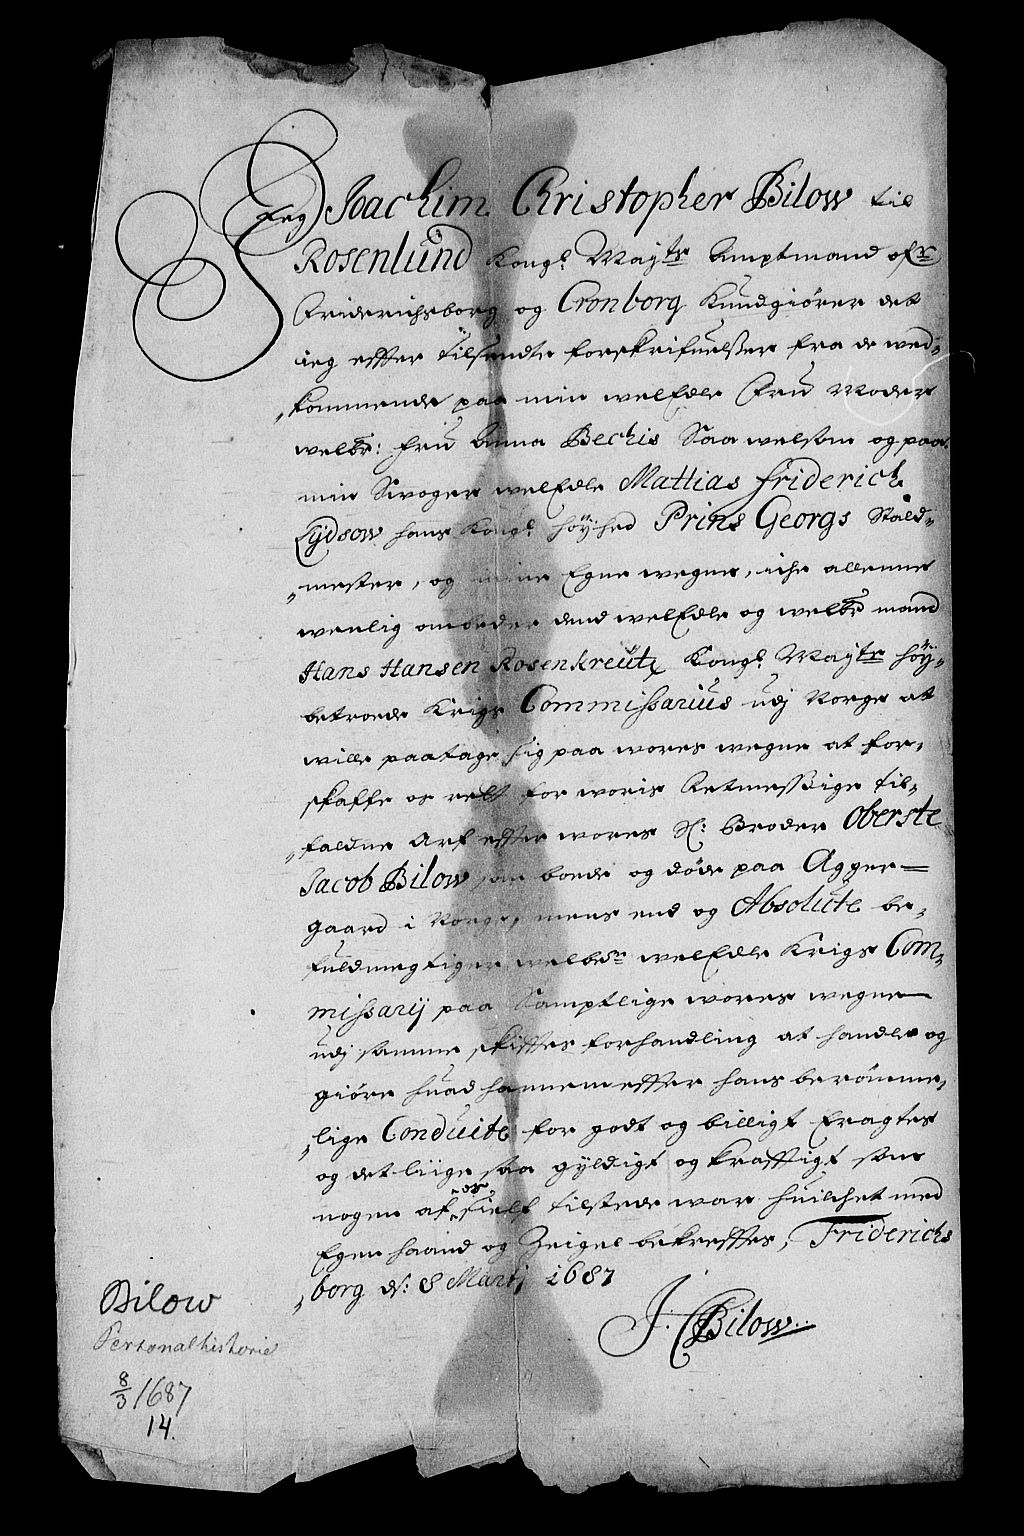 Jeg Joachim Christopher Bilow til
Rosenlund Kongl. Mayts Amptmand ofr
Friderichsborg og Cronborg Kundgiører det
ieg effter tilsendte forskrifuelßer fra de wed-
kommende paa min welEdle Fru Moders
welbr: fru Anna Bechis Saa welsom og paa
min Swoger welEdle Mattias friderich
Lydsow hans Kongl. höyhed Prins Georgs Stald-
mester, og mine Egne wegne, iche allenne
wenlig ombeder dend welEdle og welbr mand
Hans Hansen Rosenkreütz Kongl. Mayts höy-
betroede Krigs Commissarius udj Norge at
wille paatage sig paa wores wegne at for-
skaffe os rett for woris Retmesßige til-
faldne Arf effter wores Sl: Broder Oberste
Jacob Bilow som boede og døde paa Agger-
gaard i Norge, mens end og Absolute be-
fuldmegtiger welbrn welEdle Krigs Com-
missarij paa Samptlige wores wegne
udj samme skifftes forhandling at handle og
giöre huad hannem effter hans berömme-
lige Conduite for godt og billigt Eragtes
og det liige saa gyldigt og krafftigt som
nogen af os sielf tilstede war huilchet med
Egen haand og Zeigel bekrefftes, Friderichs
borg d: 8 Martj 1687
J. C Bilow.
Bilow
Personalhistorie
8/3 1687
14.